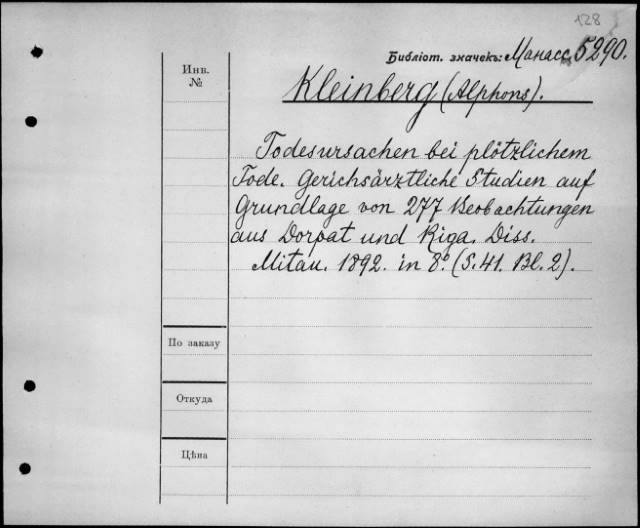 128
Библіот. значекъ: Манасс. 5290.
Инв.
№
Kleinberg (Alphons).
Todesursachen bei plötzlichem
Tode. Gerichsärztliche Studien auf
Grundlage von 277 Beobachtungen
aus Dorpat und Riga. Diss.
Mitau. 1892. in 8º. (S. 41. Bl. 2).
По заказу
Откуда
Цѣна